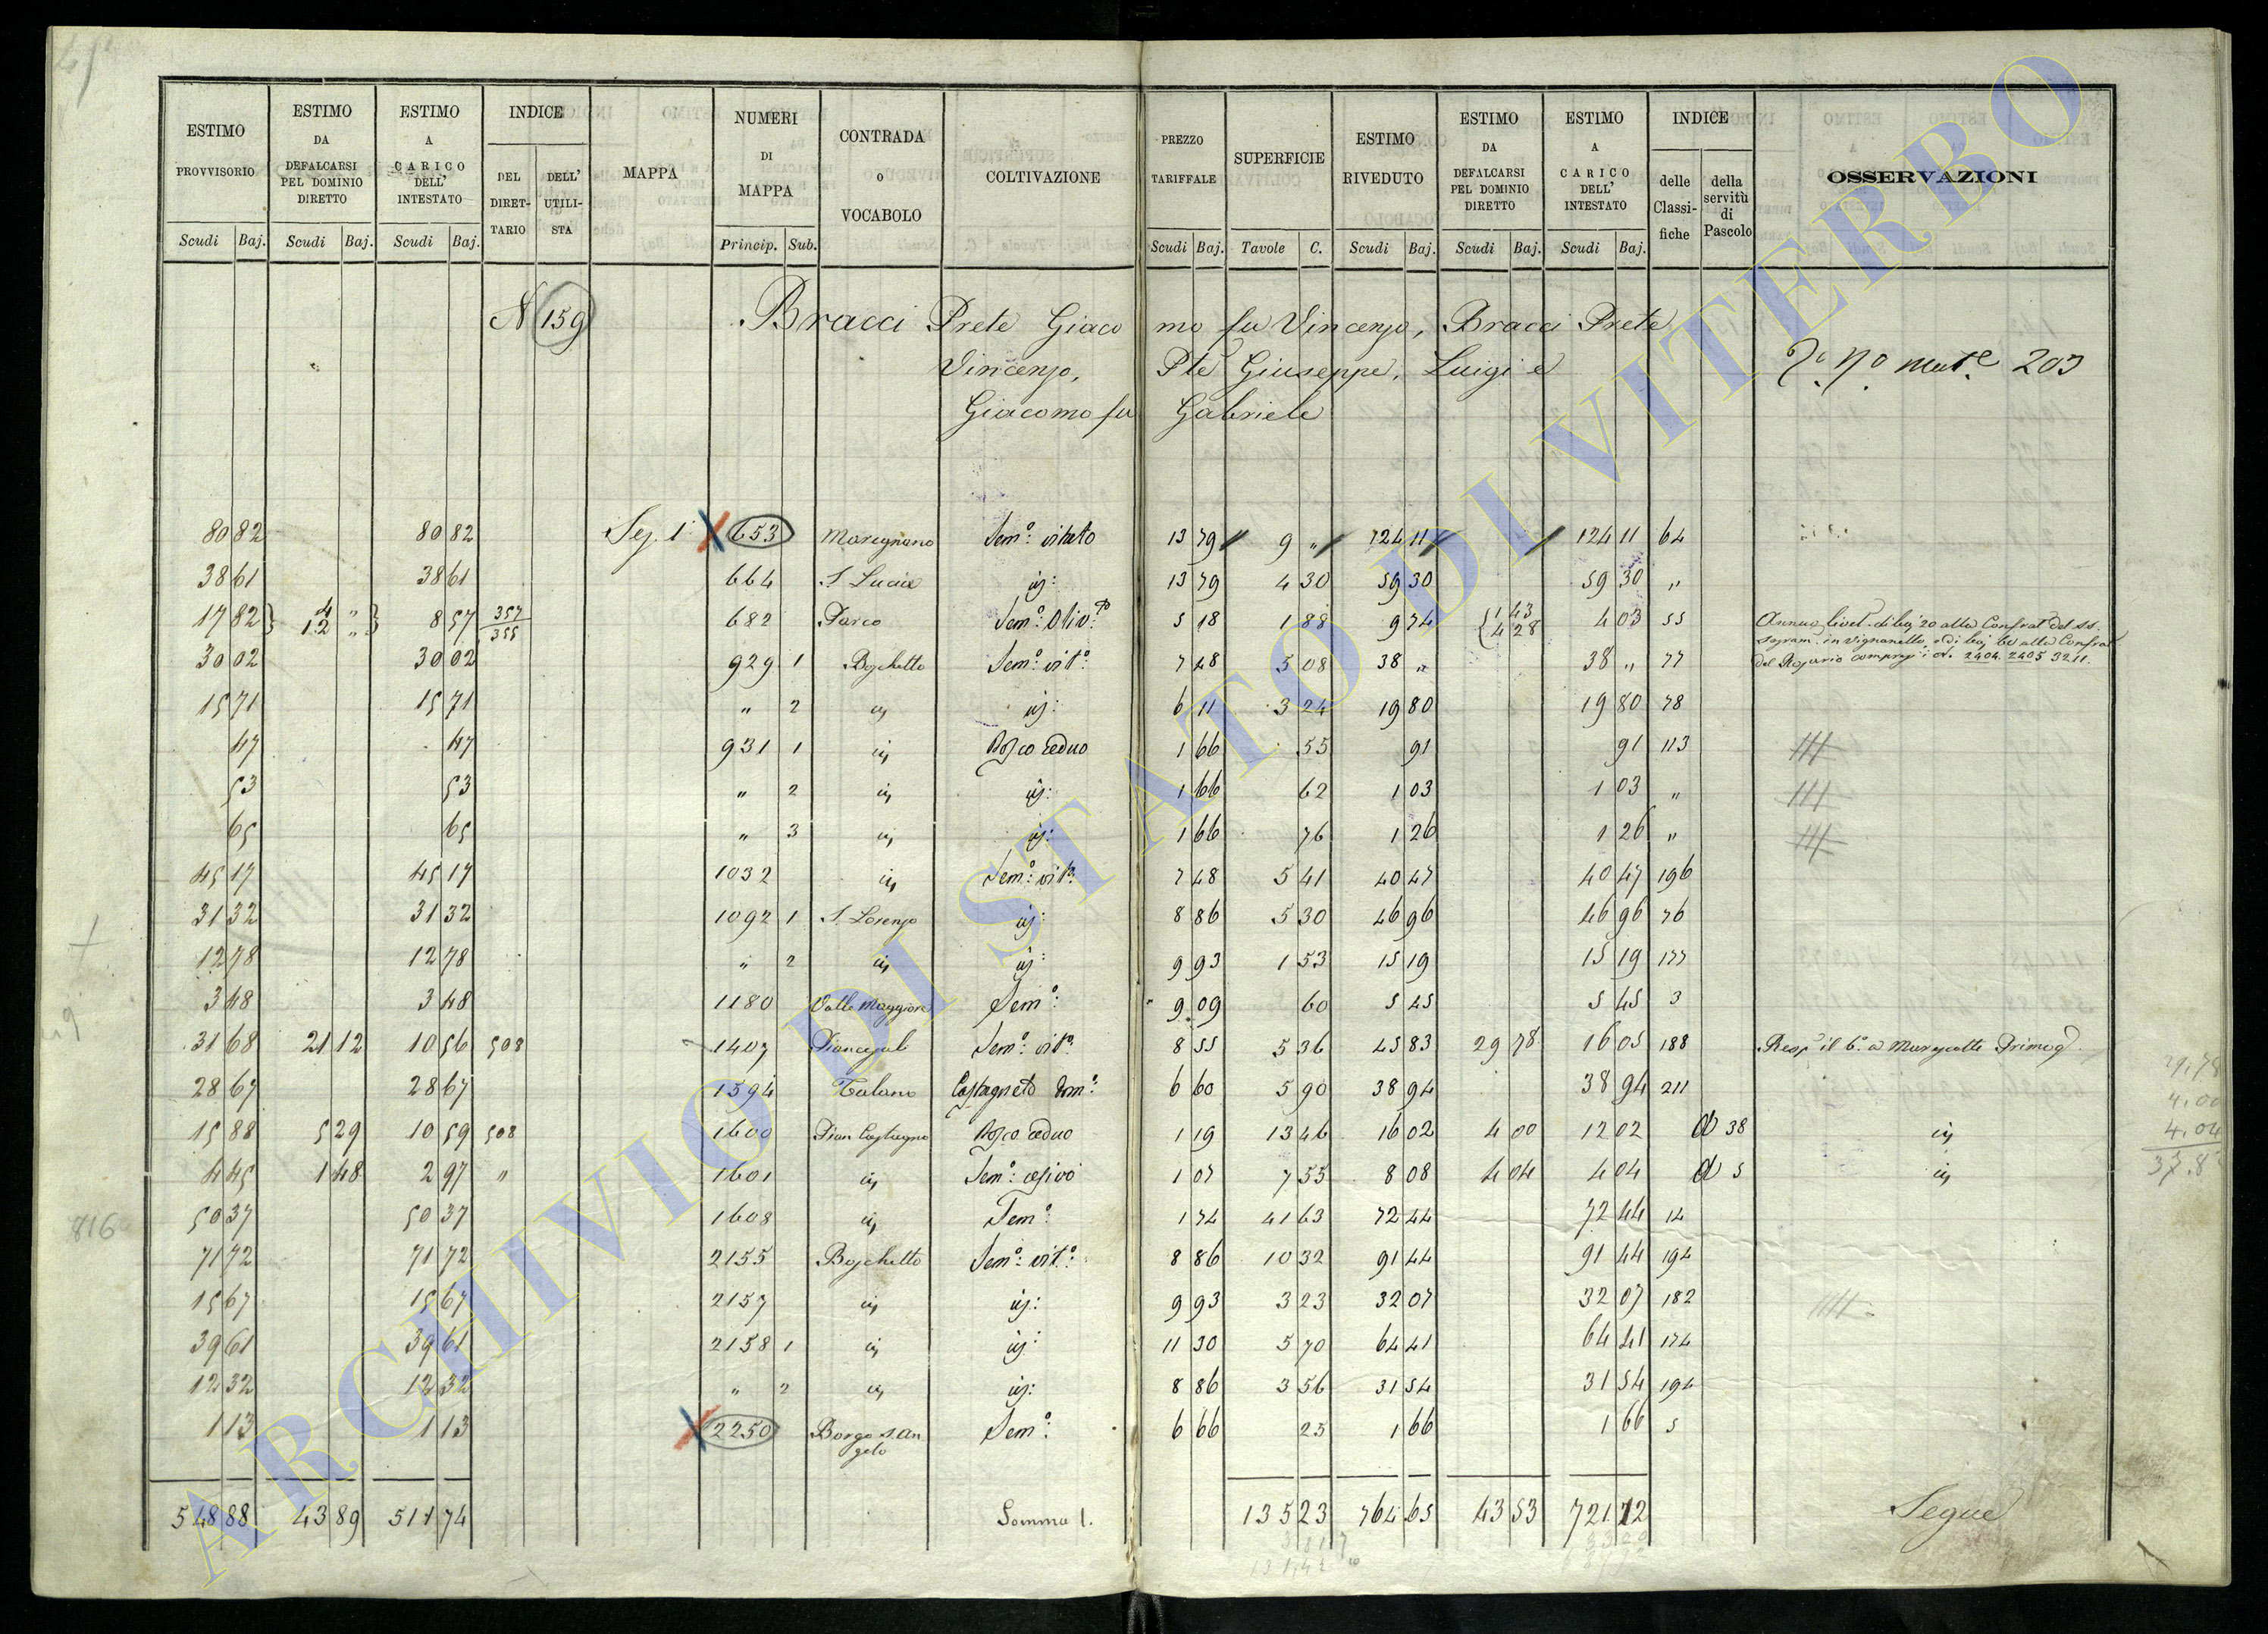 ESTIMO PROVVISORIO | ESTIMO DA DEFALCARSI PEL DOMINIO DIRETTO | ESTIMO A CARICO DELL' INTESTATO | INDICE DEL DIRET-TARIO | DELL' UTILI-STA | MAPPA | NUMERI DI MAPPA | CONTRADA O VOCABOLO | COLTIVAZIONE | PREZZO TARIFFALE | SUPERFICIE | ESTIMO RIVEDUTO | ESTIMO DA DEFALCARSI PEL DOMINIO DIRETTO | ESTIMO A CARICO DELL' INTESTATO | INDICE delle Classi-fiche | della servitù di Pascolo | OSSERVAZIONI
Scudi Baj. | Scudi Baj. | Scudi Baj. | Princip. Sub. | Scudi Baj. | Tavole C. | Scudi Baj. | Scudi Baj. | Scudi Baj.
N 159 Bracci Prete Giacomo fu Vincenzo, Bracci Prete
Vincenzo, Pte Giuseppe, Luigi e
Giacomo fu Gabriele
203
80 82 | 80 82 | Sez. 1 | 653 | Maregnano | Sem.º vitato | 13 79 | 9 " | 124 11 | 124 11 | 64
38 61 | 38 61 | 664 | S. Lucia | id: | 13 79 | 4 30 | 59 30 | 59 30 | "
17 82 | 4 " 12 " | 8 57 | 357 355 | 682 | Parco | Sem.º Oliv.to | 5 18 | 1 88 | 9 74 | 1 43 4 28 | 4 03 | 55 | Annuo livel. di baj 20 alla Confrat. del SS.
Sagram. in Vignanello, e di baj 60 alla Confrat
del Rosario 2404. 2405 3211.
30 02 | 30 02 | 929 1 | Boschetto | Sem.º vit.º | 7 48 | 5 08 | 38 " | 38 " | 77
15 71 | 15 71 | " 2 | id | id: | 6 11 | 3 24 | 19 80 | 19 80 | 78
47 | 47 | 931 1 | id | Bosco ceduo | 1 66 | 55 | 91 | 91 | 113
53 | 53 | " 2 | id | id: | 1 66 | 62 | 1 03 | 1 03 | "
65 | 65 | " 3 | id | id: | 1 66 | 76 | 1 26 | 1 26 | "
45 17 | 45 17 | 1032 | id | Sem.º vit.º | 7 48 | 5 41 | 40 47 | 40 47 | 196
31 32 | 31 32 | 1092 1 | S. Lorenzo | id: | 8 86 | 5 30 | 46 96 | 46 96 | 76
12 78 | 12 78 | " 2 | id | id: | 9 93 | 1 53 | 15 19 | 15 19 | 177
3 48 | 3 48 | 1180 | Valle Maggiore | Sem.º | 9 09 | 60 | 5 45 | 5 45 | 3
31 68 | 21 12 | 10 56 | 508 | 1407 | Sem.º vit.º | 8 55 | 5 36 | 45 83 | 29 78 | 16 05 | 188 | Resp. il 6.º a Primog
28 67 | 28 67 | 1594 | Talano | Castagneto dom.º | 6 60 | 5 90 | 38 94 | 38 94 | 211
15 88 | 5 29 | 10 59 | 508 | 1600 | Pian Castagno | Bosco ceduo | 1 19 | 13 46 | 16 02 | 4 00 | 12 02 | 38 | id
4 45 | 1 48 | 2 97 | " | 1601 | id | Sem.º cesivo | 1 07 | 7 55 | 8 08 | 4 04 | 4 04 | 5 | id
50 37 | 50 37 | 1608 | id | Sem.º | 1 74 | 41 63 | 72 44 | 72 44 | 14
71 72 | 71 72 | 2155 | Boschetto | Sem.º vit.º | 8 86 | 10 32 | 91 44 | 91 44 | 194
15 67 | 15 67 | 2157 | id | id: | 9 93 | 3 23 | 32 07 | 32 07 | 182
39 61 | 39 61 | 2158 1 | id | id: | 11 30 | 5 70 | 64 41 | 64 41 | 174
12 32 | 12 32 | " 2 | id | id: | 8 86 | 3 56 | 31 54 | 31 54 | 194
1 13 | 1 13 | 2250 | Borgo S. Angelo | Sem.º | 6 66 | 25 | 1 66 | 1 66 | 5
548 88 | 43 89 | 511 74 | Somma 1. | 135 23 | 764 65 | 43 53 | 721 12 | Segue
816
29,78
4.00
4.04
ARCHIVIO DI STATO DI VITERBO